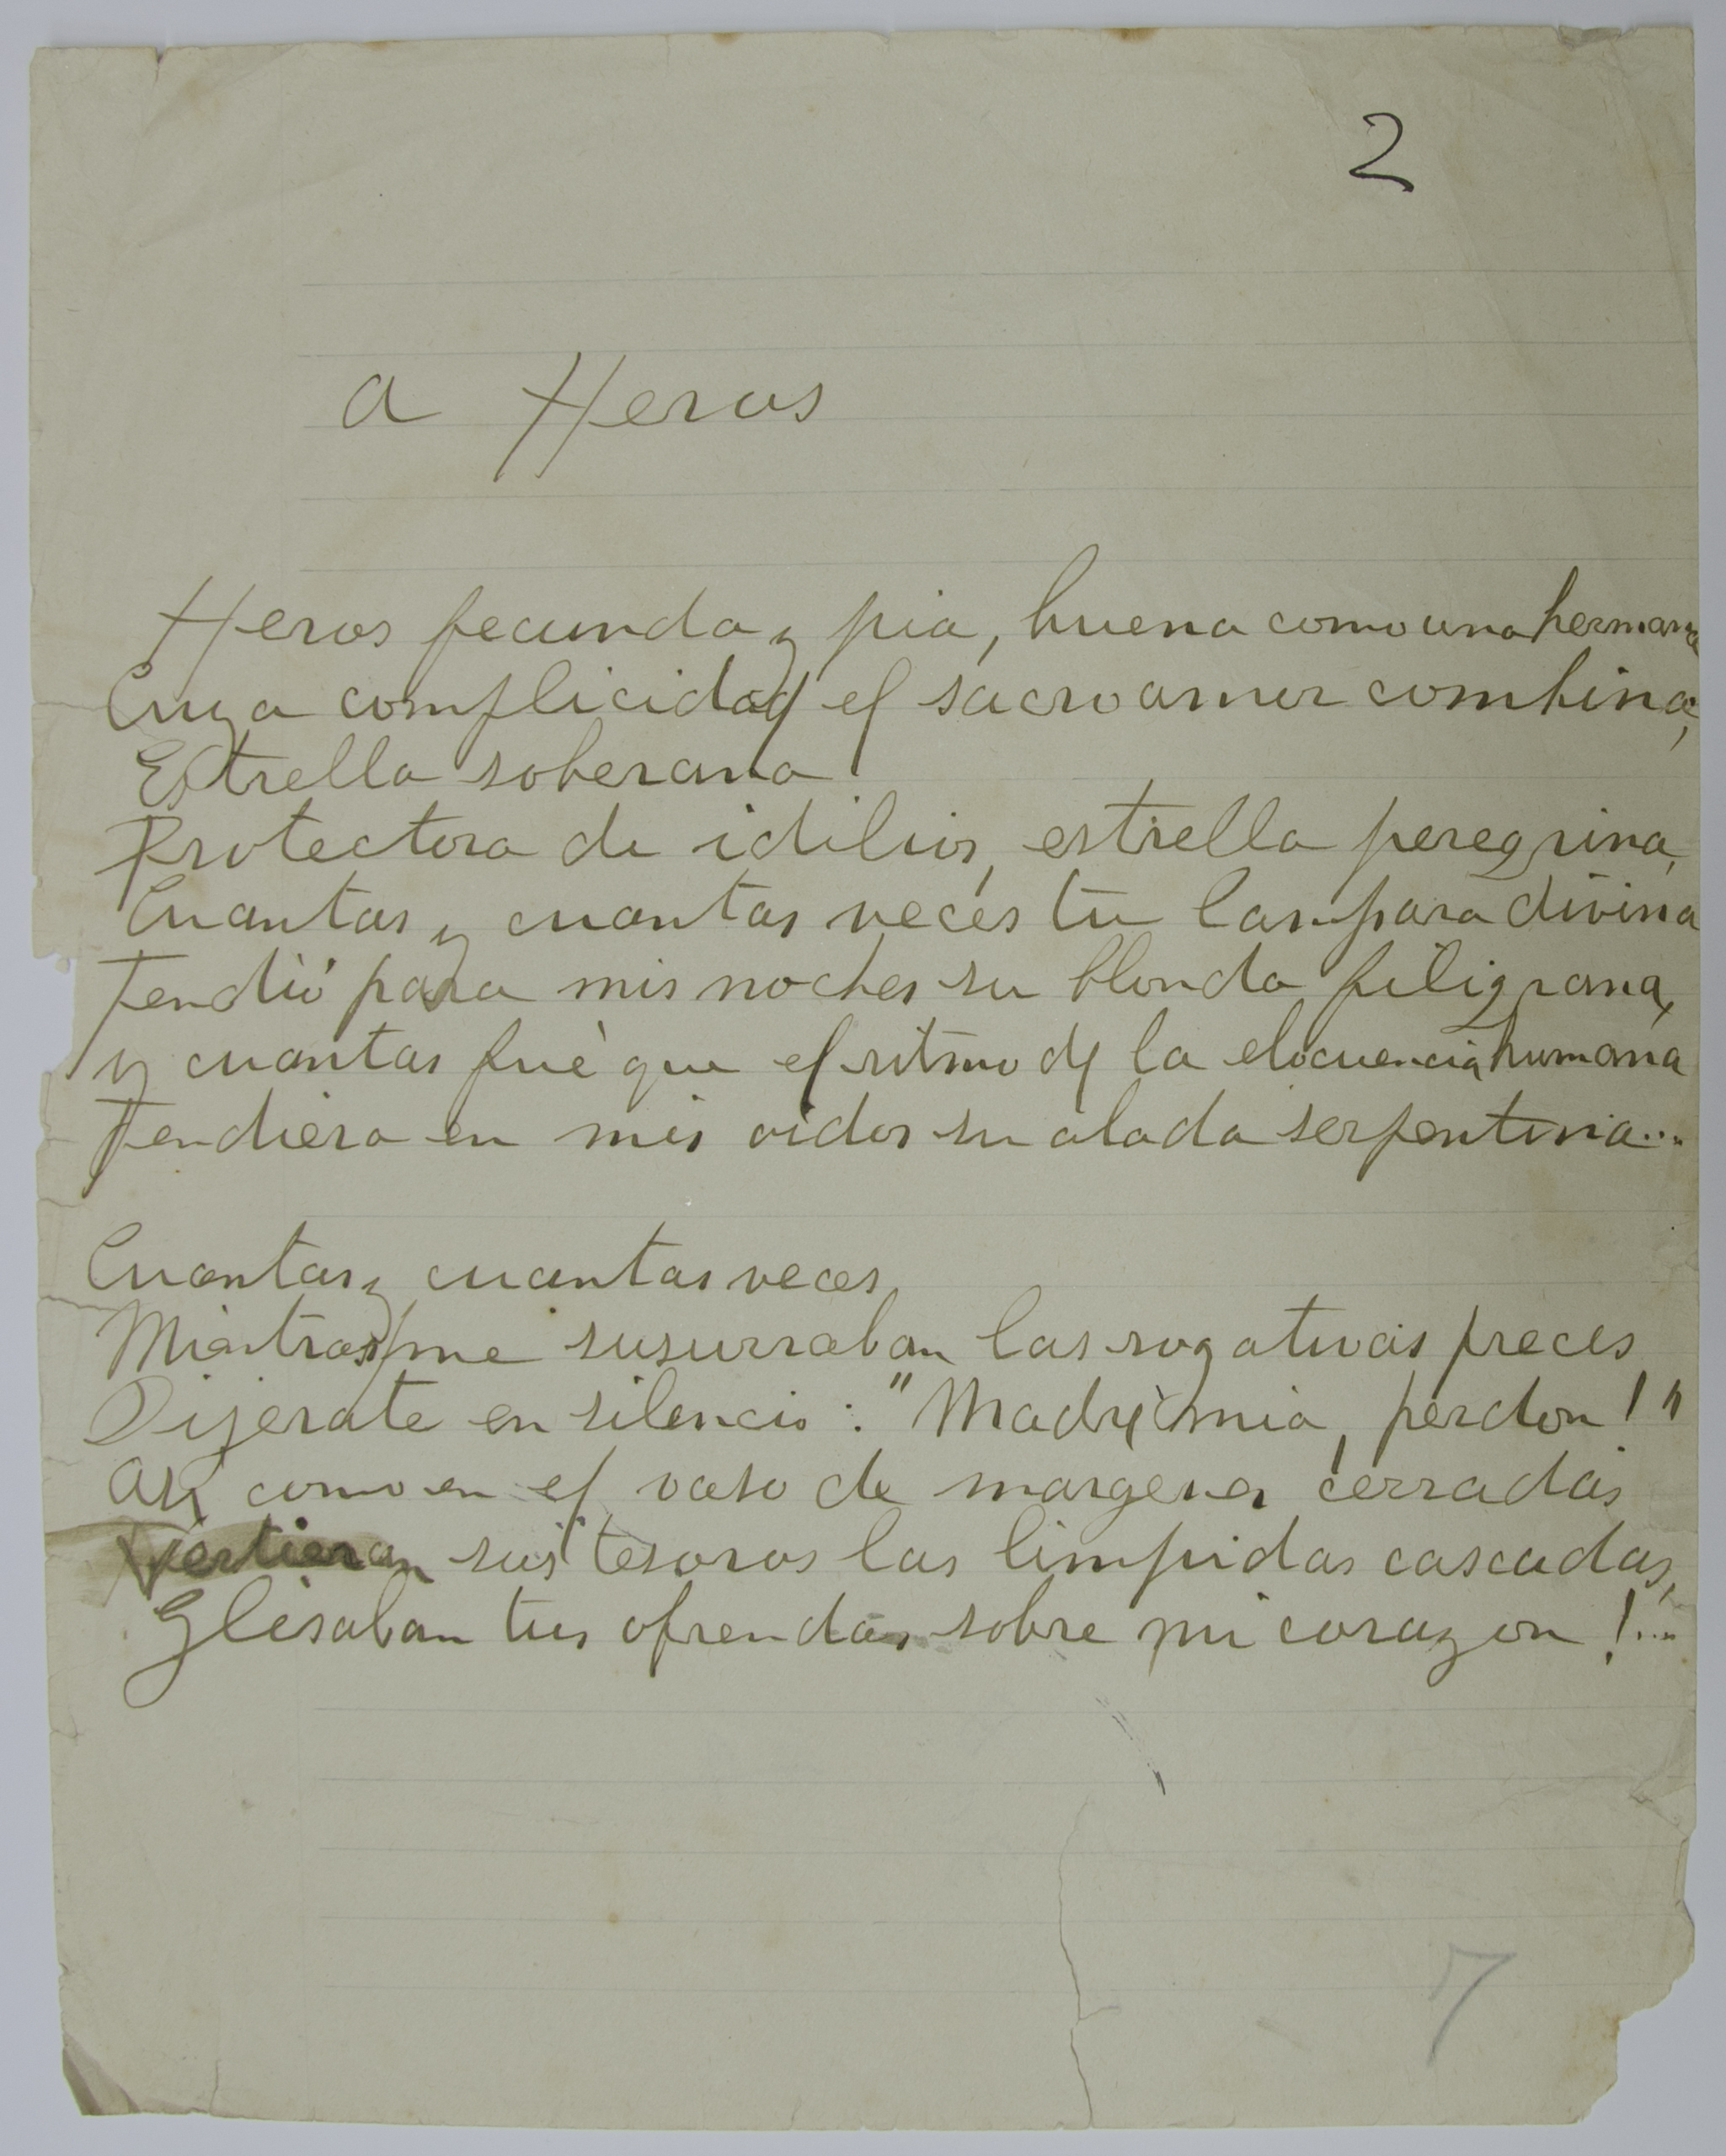 2
A Heros
Heros fecunda y pia, buena como una hermana
Cuya complicidad el sacro amor combina,
Estrella soberana
Protectora de idilios, estrella peregrina,
Cuantas y cuantas veces tu lampara divina
Tendió para mis noches su blonda filigrana,
y cuantas fué que el ritmo de la elocuencia humana
Tendiera en mis oidos su alada serpentina...
Cuantas y cuantas veces,
Mientras me susurraban las rogativas preces
Dijerate en silencio: "Madre mia, perdon!"
Asi como en el vaso de margenes cerradas
Vertieran sus tesoros las limpidas cascadas,
Glisaban tus ofrendas sobre mi corazon!...
7